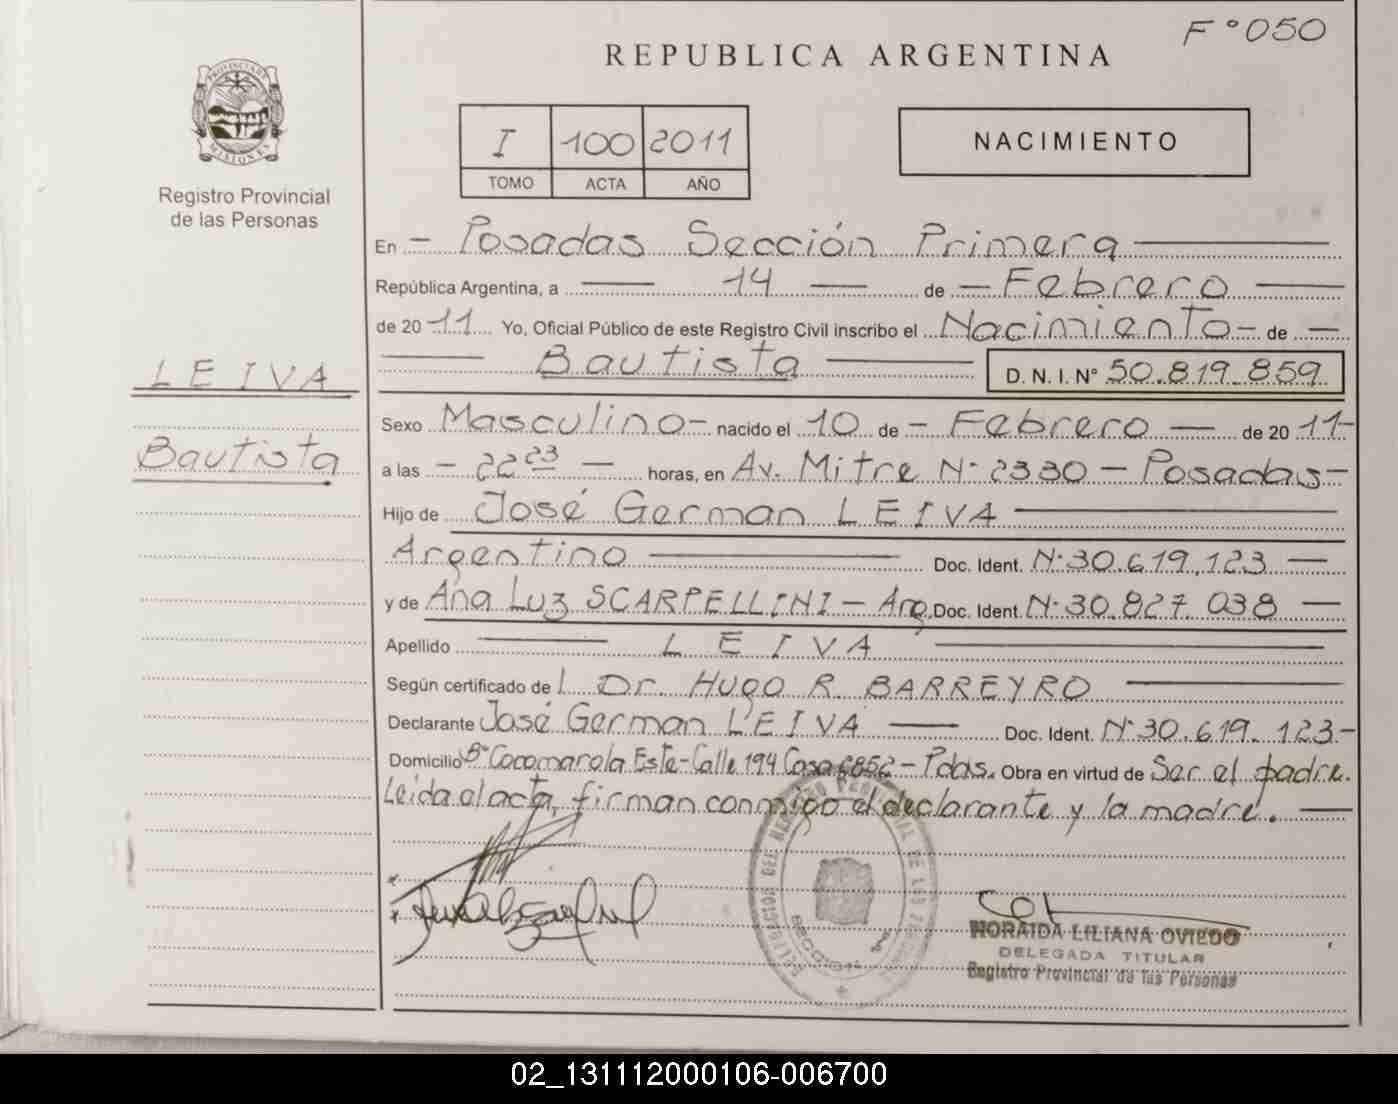 F° 050
REPUBLICA ARGENTINA
PROVINCIA DE MISIONES
I 100 2011
TOMO ACTA AÑO
NACIMIENTO
Registro Provincial
de las Personas
En - Posadas Sección Primera
República Argentina, a 14 de - Febrero
de 20 -11 Yo, Oficial Público de este Registro Civil inscribo el Nacimiento - de -
Bautista D.N.I. N° 50.819.859
LEIVA
Sexo Masculino - nacido el 10 de - Febrero - de 20 11-
Bautista
a las - 22 23 - horas, en Av. Mitre N· 2330 - Posadas -
Hijo de José German LEIVA
Argentino Doc. Ident. N·30.619.123 -
y de Ana Luz SCARPELLINI - Arg. Doc. Ident. N·30.827.038 -
Apellido LEIVA
Según certificado de Dr. HUgO R BARREYRO
Declarante José German LEIVA - Doc. Ident. N·30.619.123-
Domicilio B° Cocomarola Este - Calle 194 Casa 6852 - Pdas. Obra en virtud de Ser el padre.
Leida el acta, firman conmigo el declarante y la madre. -
NORAIDA LILIANA OVIEDO
DELEGADA TITULAR
Registro Provincial de las Personas
SECCION 1ª
02_131112000106-006700